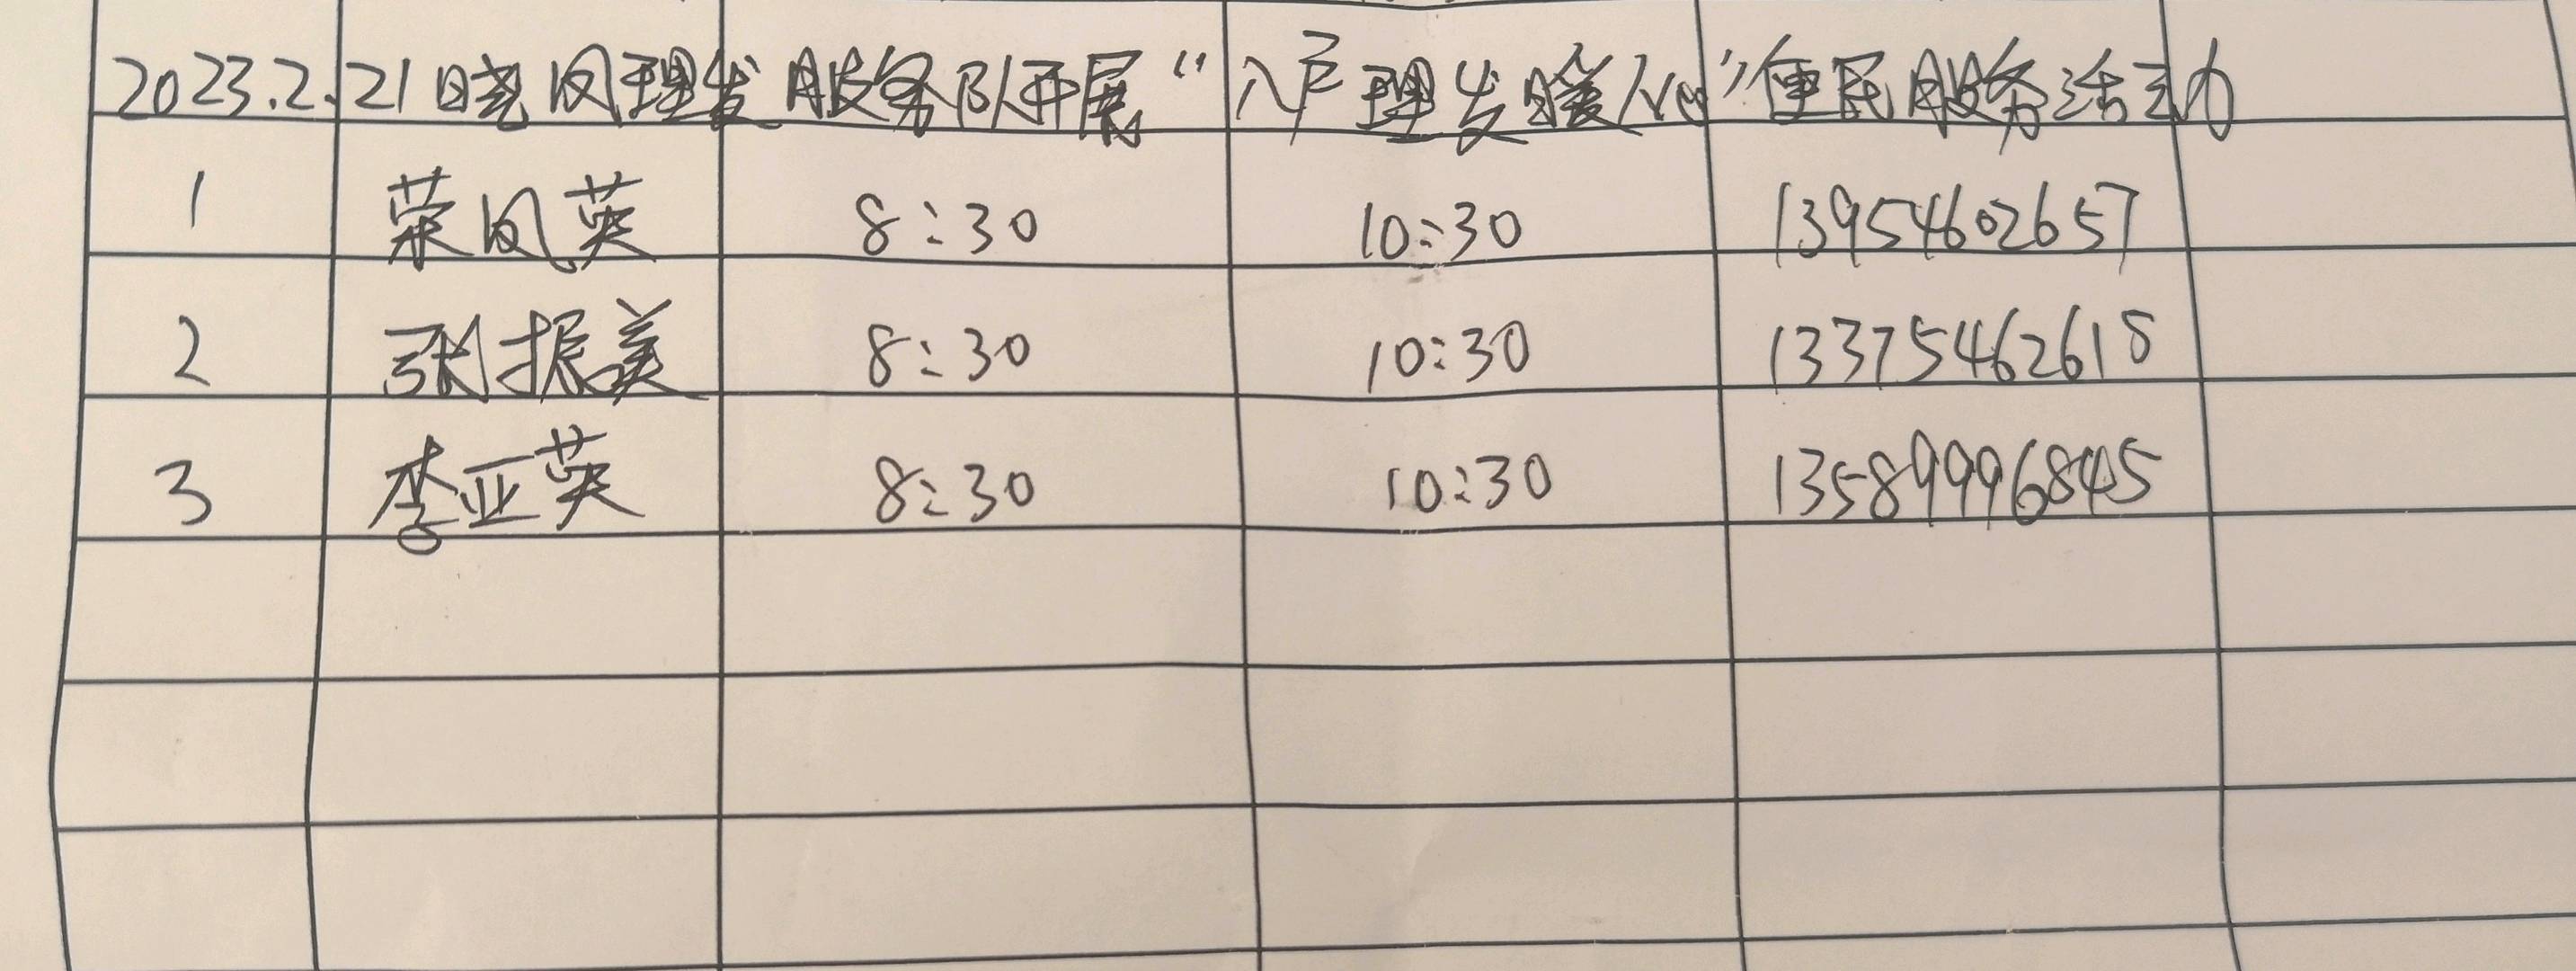 2023.2.21晓凤理发服务队开展“入户理发暖人心”便民服务活动
1 荣凤英 8:30 10:30 13954602657
2 张振美 8:30 10:30 13375462618
3 李亚英 8:30 10:30 13589996845